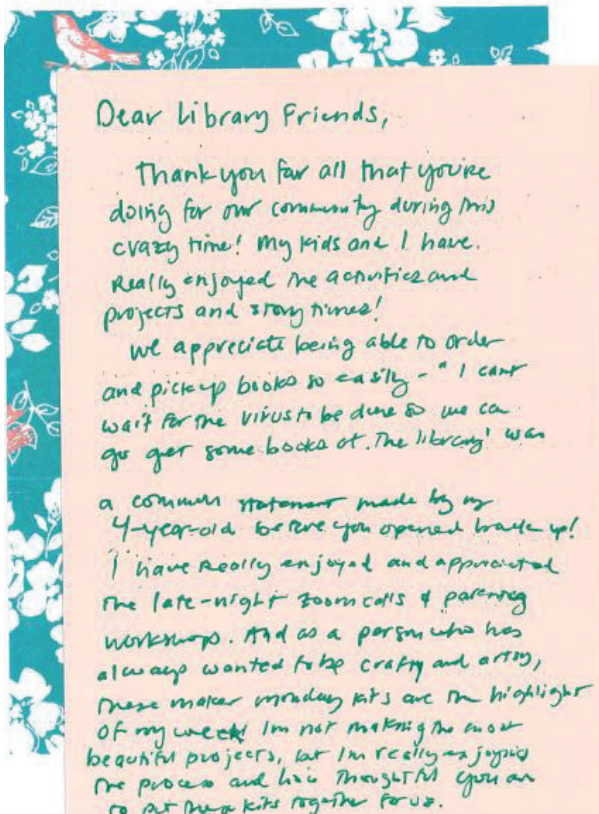 Dear Library Friends,
Thank you for all that you're
doing for our community during this
crazy time! My kids and I have
Really enjoyed the activities and
projects and story times!
We appreciate being able to order
and pick up books so easily - "I can't
wait for the virus to be done so we can
go get some books at the library" was
a common statement made by my
4-year-old before you opened back up!
I have Really enjoyed and appreciated
the late-night zoom calls & parenting
workshop. And as a person who has
always wanted to be crafty and artsy,
these maker monday kits are the highlight
of my week! Im not making the most
beautiful projects, but Im really enjoying
the process and how thoughtful you are
to put these kits together for us.